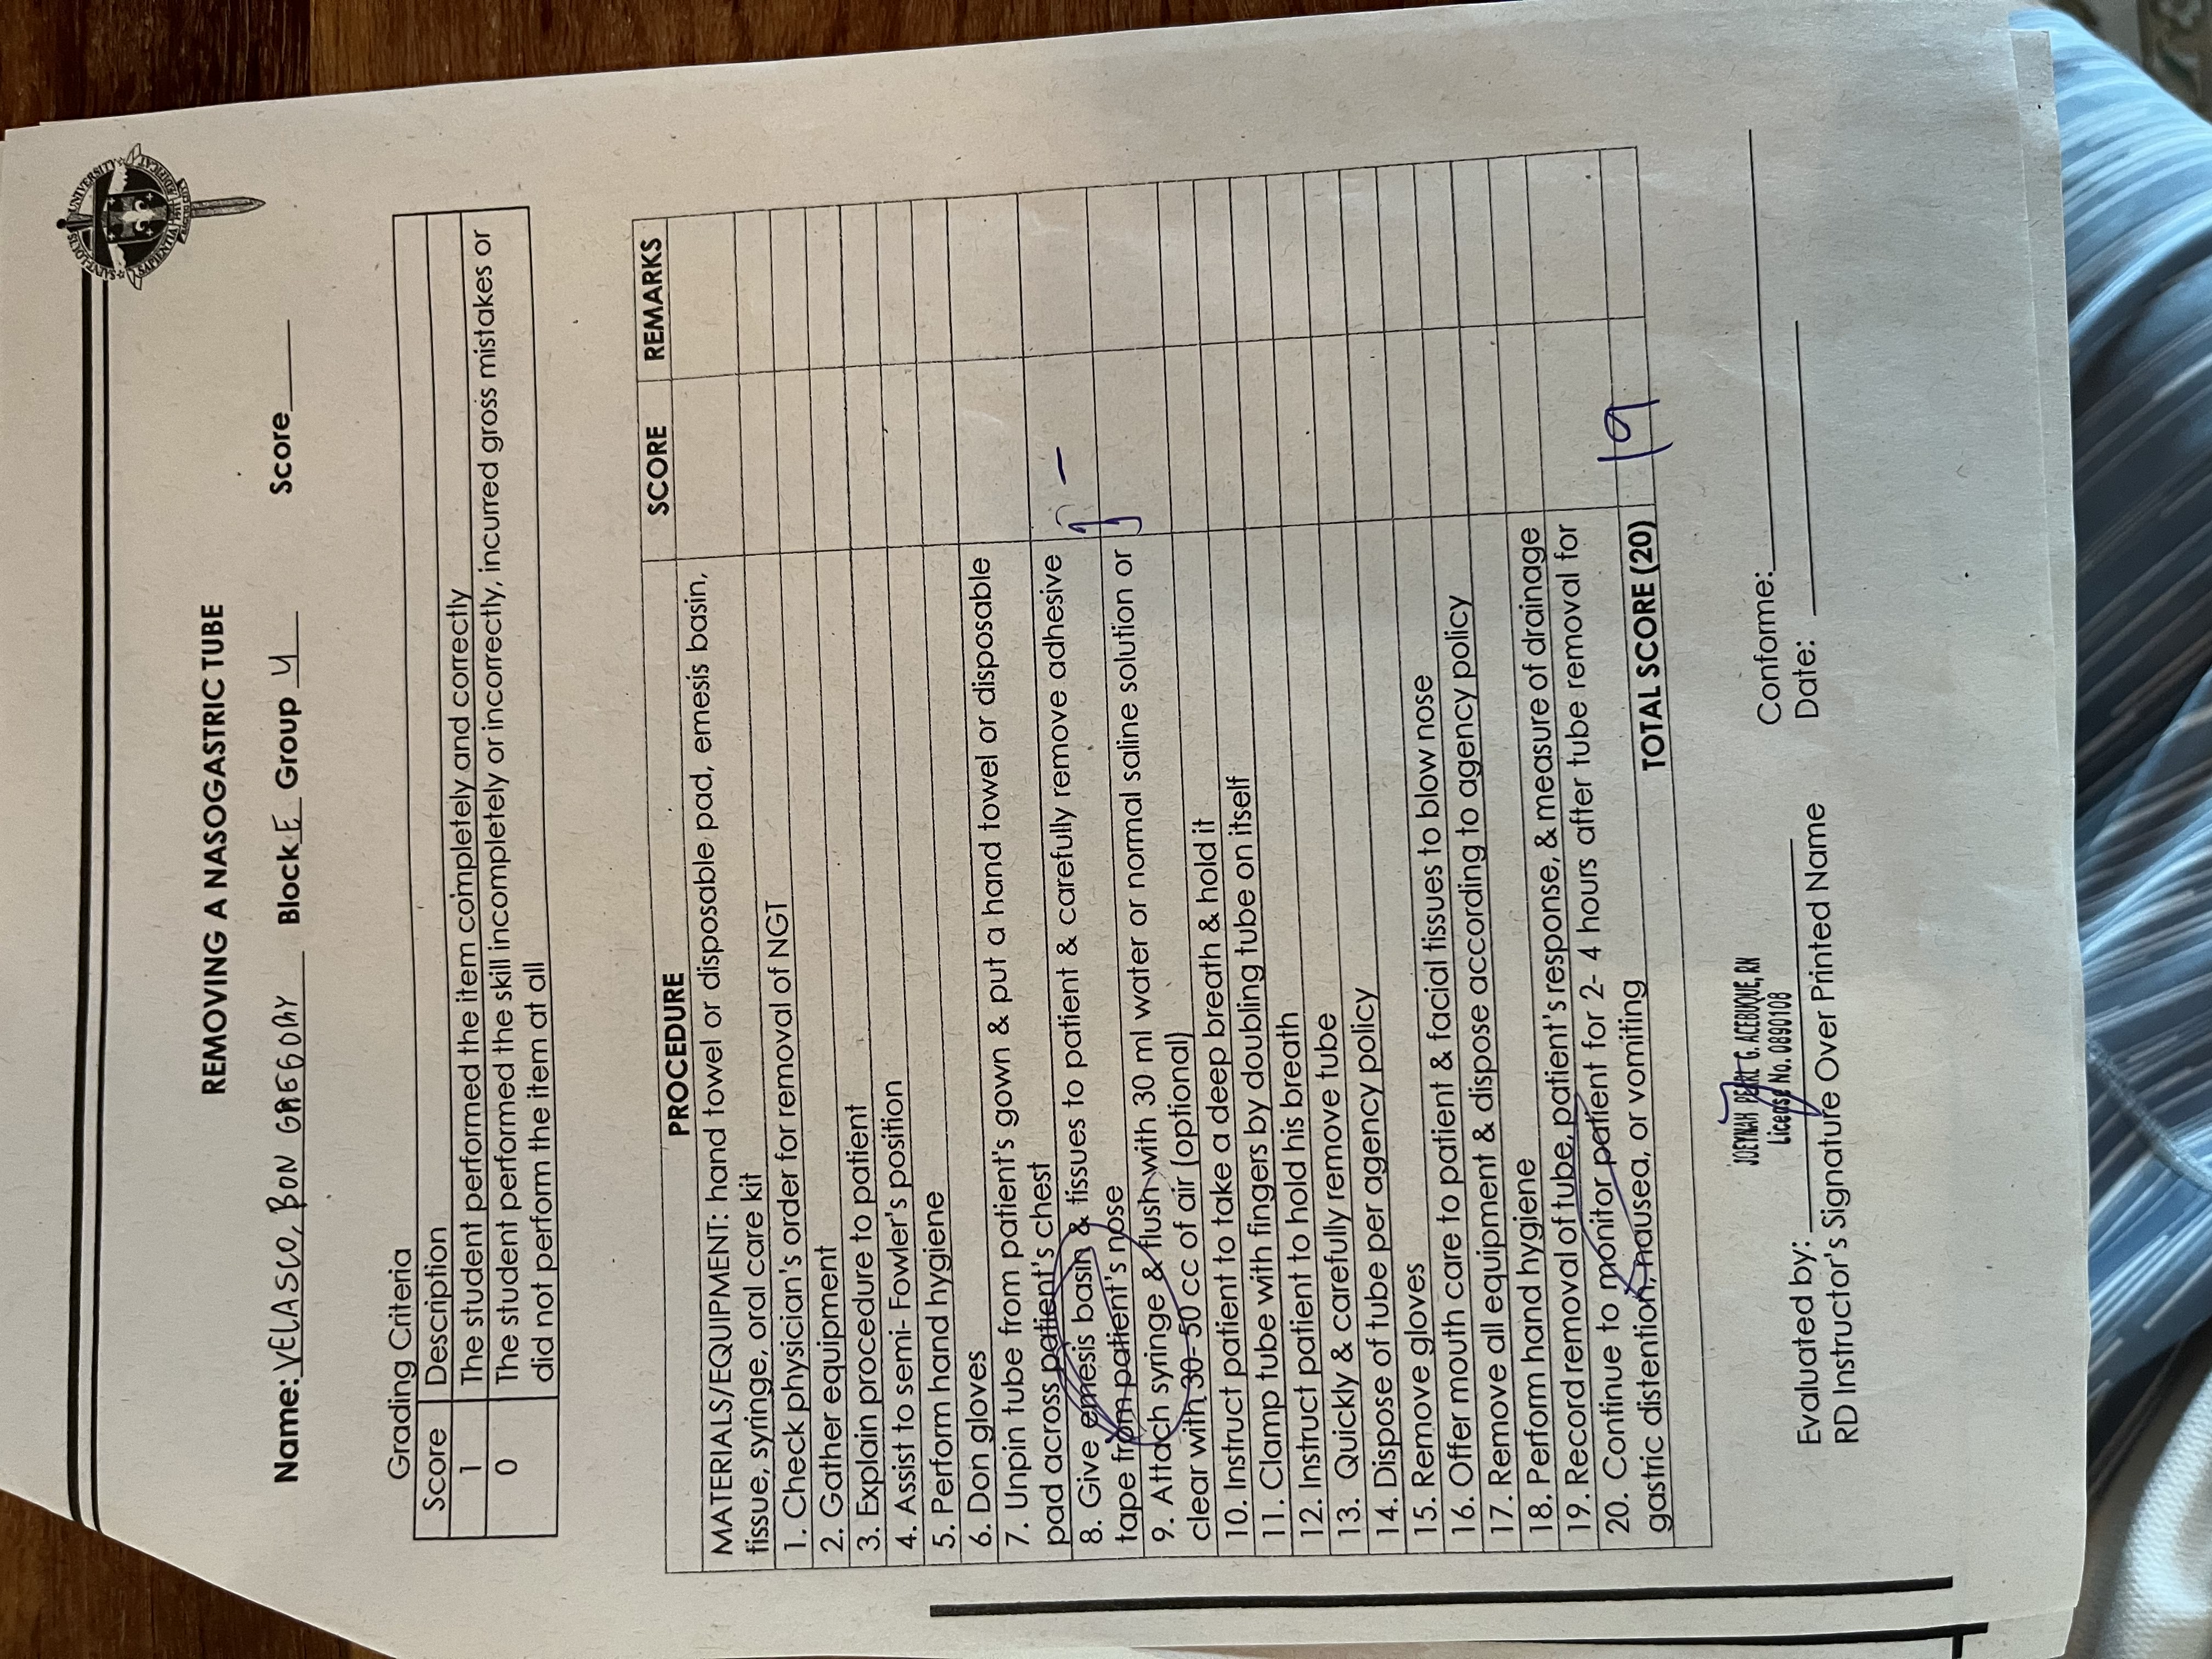 SAINT LOUIS UNIVERSITY
SAPIENTIA ÆDIFICAT
1911
BAGUIO CITY
REMOVING A NASOGASTRIC TUBE
Name: VELASCO, BON GREGORY Block E Group 4 Score
Grading Criteria
Score Description
1 The student performed the item completely and correctly
0 The student performed the skill incompletely or incorrectly, incurred gross mistakes or
did not perform the item at all
PROCEDURE SCORE REMARKS
MATERIALS/EQUIPMENT: hand towel or disposable pad, emesis basin,
tissue, syringe, oral care kit
1. Check physician's order for removal of NGT
2. Gather equipment
3. Explain procedure to patient
4. Assist to semi- Fowler's position
5. Perform hand hygiene
6. Don gloves
7. Unpin tube from patient's gown & put a hand towel or disposable
pad across patient's chest
8. Give emesis basin & tissues to patient & carefully remove adhesive –
tape from patient's nose
9. Attach syringe & flush with 30 ml water or normal saline solution or
clear with 30- 50 cc of air (optional)
10. Instruct patient to take a deep breath & hold it
11. Clamp tube with fingers by doubling tube on itself
12. Instruct patient to hold his breath
13. Quickly & carefully remove tube
14. Dispose of tube per agency policy
15. Remove gloves
16. Offer mouth care to patient & facial tissues to blow nose
17. Remove all equipment & dispose according to agency policy
18. Perform hand hygiene
19. Record removal of tube, patient's response, & measure of drainage
20. Continue to monitor patient for 2- 4 hours after tube removal for
gastric distention, nausea, or vomiting
TOTAL SCORE (20) 19
JOEYNAH PEARL G. ACEBUQUE, RN
License No. 0890108
Evaluated by:
RD Instructor's Signature Over Printed Name
Conforme:
Date: